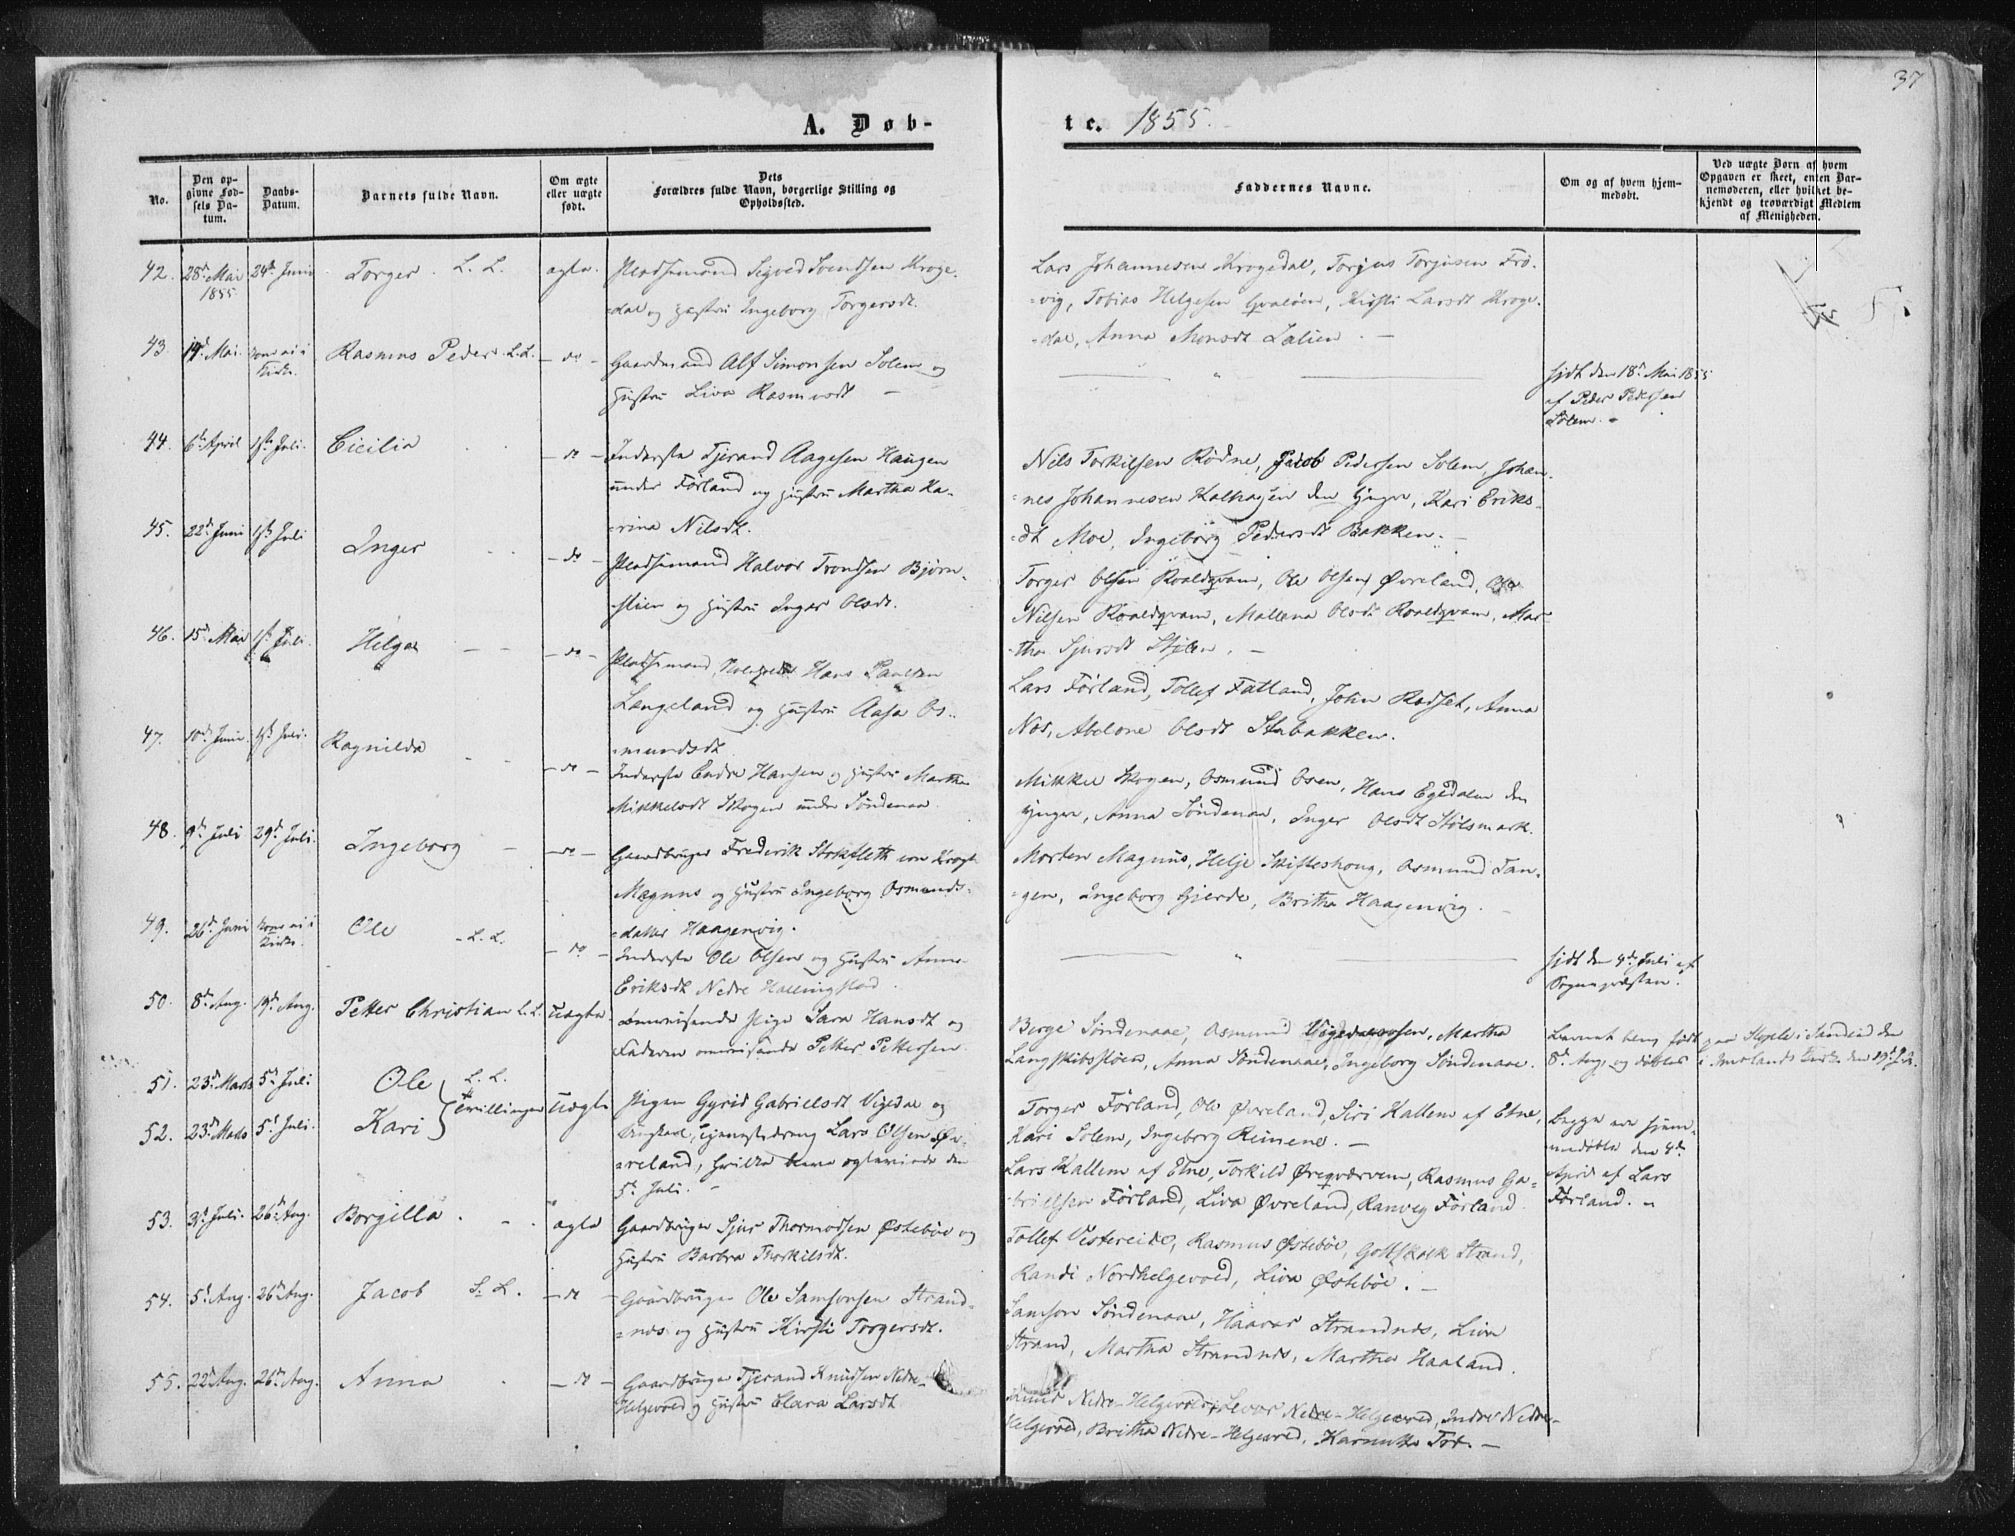 37
A. Døb-
te. 1855.
No.
Den op-
givne Fød-
sels Da-
tum.
Daabs-
Datum.
Barnets fulde Navn.
Om ægte
eller uægte
født.
Dets
Forældres fulde Navn, borgerlige Stilling og
Opholdssted.
Faddernes Navne.
Om og af hvem hjem-
medøbt.
Ved uægte Børn af hvem
Opgaven er skeet, enten Bar-
nemoderen, eller hvilket be-
kjendt og troværdigt Medlem
af Menigheden.
42. 28de Mai 1855 24de Juni Torger. L. L. ægte. Pladsemand Sigved Svendsen Kroge-
dal og Hustru Ingeborg Torgersdt.
Lars Johannesen Krogedal, Torjus Torjusen Frø-
vig, Tobias Helgesen Hvaløen, Kirsti Larsdt Kroge-
dal, Anna Monsdt Lalien. —
43 14de Mai. Rasmus Peder. L.L. — do — Gaardmand Alf Simonsen Solem og
Hustru Liva Rasmusdt —
hjdt den 18de Mai 1855
af Peder Pedersen
Solem. —
44. 6te April 1ste Juli. Cicilia — do — Inderste Tjerand Aagesen Haugen
under Førland og Hustru Martha Ka-
rina Nilsdt.
Nils Torkilsen Rødne, Jacob Pedersen Solem, Johan-
nes Johannesen Kalhagen den Yngre, Kari Eriks-
dt Moe, Ingeborg Pedersdt Bakken. —
45. 22de Juni 1ste Juli Inger — do — Pladsemand Halvor Trondsen Bjørn-
stien og Hustru Inger Olsdt.
Torger Olsen Roaldqvam, Ole Olsen Øvreland, Ole
Nilsen Roaldqvam, Mallena Olsdt Roaldqvam, Mar-
tha Sjursdt Stølen. —
46. 15de Mai 1ste Juli. Helga — do — Pladsemand, Hans Paulsen
Langeland og Hustru Aasa Os-
mundsdt.
Lars Førland, Tollef Fatland, John Rødset, Anna
Nos, Abelone Olsdt Stabakken.
47. 10de Juni 1ste Juli. Ragnilda — do — Inderste Endre Hansen og Hustru Martha
Mikkelsdt Skogen under Søndenaa.
Mikkel Skogen, Osmund Osen, Hans Egedalen den
Yngre, Anna Søndenaa, Inger Olsdt Stølsmark.
48. 9de Juli 29de Juli. Ingeborg — do — Gaardbruger Frederik Stokfleth von Krogh
Magnus og Hustru Ingeborg Osmunds-
datter Haagenvig.
Morten Magnus, Helje Skifteshoug, Osmund Tan-
gen, Ingeborg Gjerde, Britha Haagenvig.
49. 26de Juni Ole L. L. — do — Inderste Ole Olsen og Hustru Anna
Eriksdt Nedre Hallingstad.
hjdt den 4de Juli af
Sognepræsten.
50. 8de Aug. 19de Aug. Petter Christian L. L. uægte Omreisende Pige Sara Hansdt og
Faderen omreisende Petter Pettersen.
Berge Søndenaae, Osmund Vigedalsosen, Martha
Langskibsfloen, Anna Søndenaae, Ingeborg Søndenaae.
Barnet blev født paa Stople i Sandeid den
8de Aug. og døbtes i Imslands Kirke den
51. 23de Marts 5te Juli Ole L. L.
52. 23de Marts 5te Juli. Kari Tvillinger uægte Pigen Gyrid Gabrielsdt Vigedal og
Ungkarl, Tjenestedreng Lars Olsen Øv-
reland, hvilke bleve ægteviede den
5te Juli. —
Torger Førland, Ole Øvreland, Siri Kallem af Etne,
Kari Solem, Ingeborg Reinene. —
Lars Kallem af Etne, Torkild Øreqværven, Rasmus Ga-
brielsen Førland, Liva Øvreland, Ranveg Førland
Begge ere hjem-
medøbte den 4de
April af Lars
Førland. —
53. 3de Juli. 26de Aug. Borgilla ægte Gaardbruger Sjur Thormodsen Østebøe og
Hustru Barbra Thorkilsdt.
Tollef Vestereide, Rasmus Østebøe, Gottskalk Strand,
Randi Nordhelgevold, Liva Østebøe. —
54. 5te Aug. 26de Aug. Jacob S. L. — do — Gaardbruger Ole Samsonsen Strand-
næs og Hustru Kirsti Torgersdt.
Samson Søndenaae, Haavar Strandnæs, Liva
Strand, Martha Strandnæs, Martha Haaland.
55. 22de Aug. 26de Aug. Anna — do — Gaardbruger Tjerand Knudsen Nedre-
Helgevold og Hustru Clara Larsdt
Knud Nedre-Helgevold, Sevar Nedre-Helgevold, Indre Nedre-
Helgevold, Britha Nedre-Helgevold, —